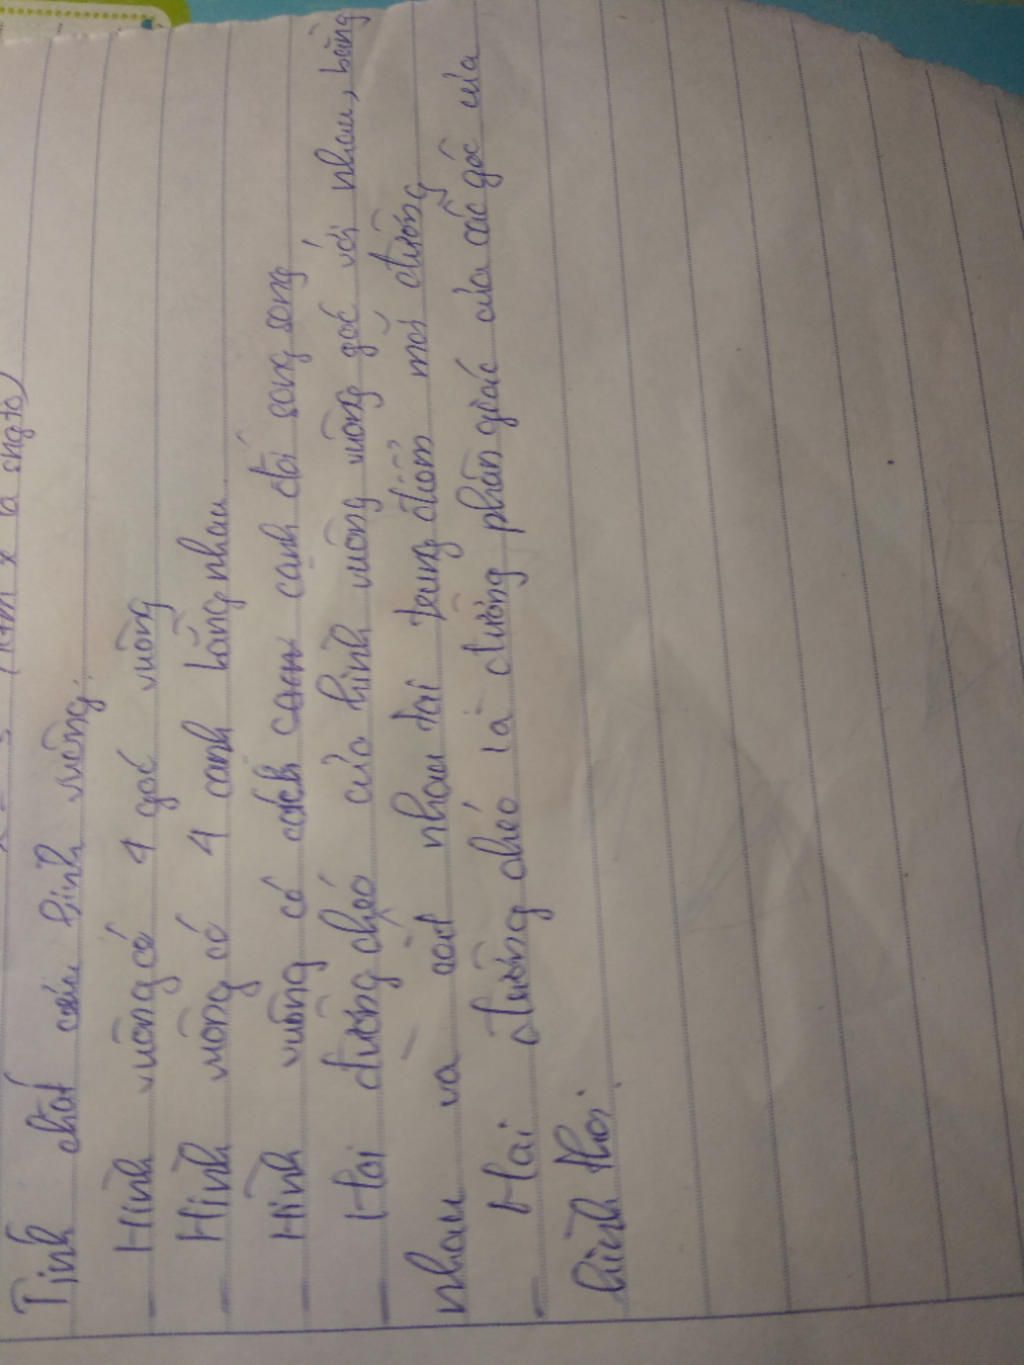 Tính chất của hình vuông:
- Hình vuông có 4 góc vuông
- Hình vuông có 4 cạnh bằng nhau
- Hình vuông có cạnh đối song song
- Hai đường chéo của hình vuông vuông góc với nhau, bằng
nhau và cắt nhau tại trung điểm mỗi đường
- Hai đường chéo là đường phân giác của các góc của
hình thoi.